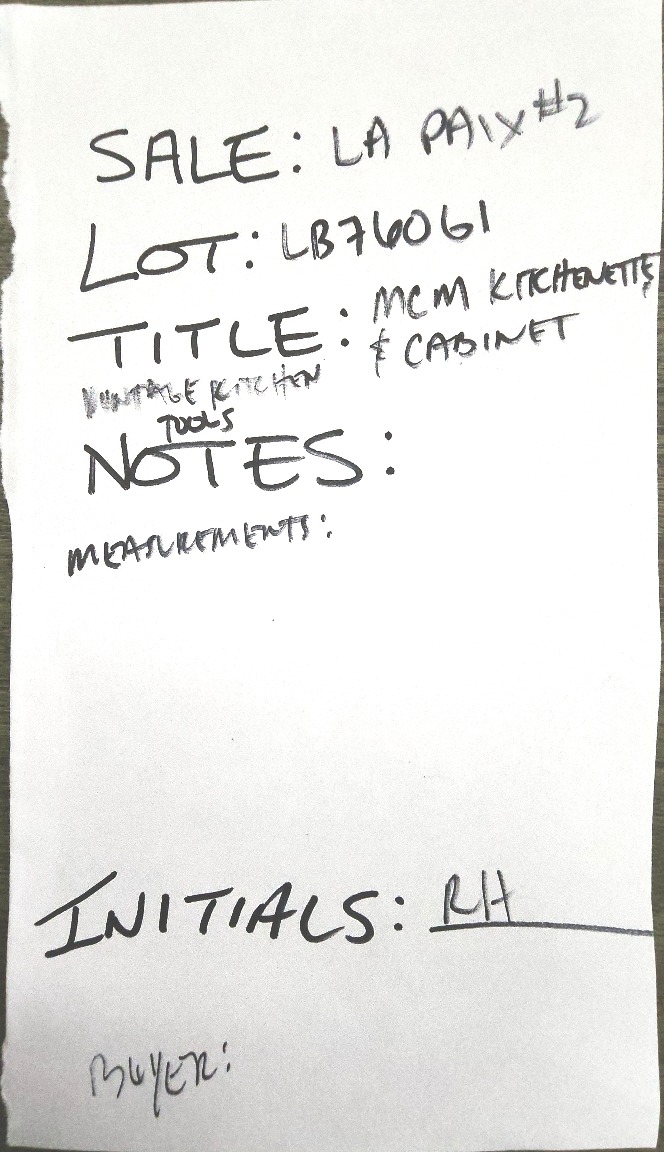 SALE: LA PAIX #2
LOT: LB76061
TITLE: MCM KITCHENETTE
& CABINET
VINTAGE KITCHEN
TOOLS
NOTES:
MEASUREMENTS:
INITIALS: RH
BUYER: